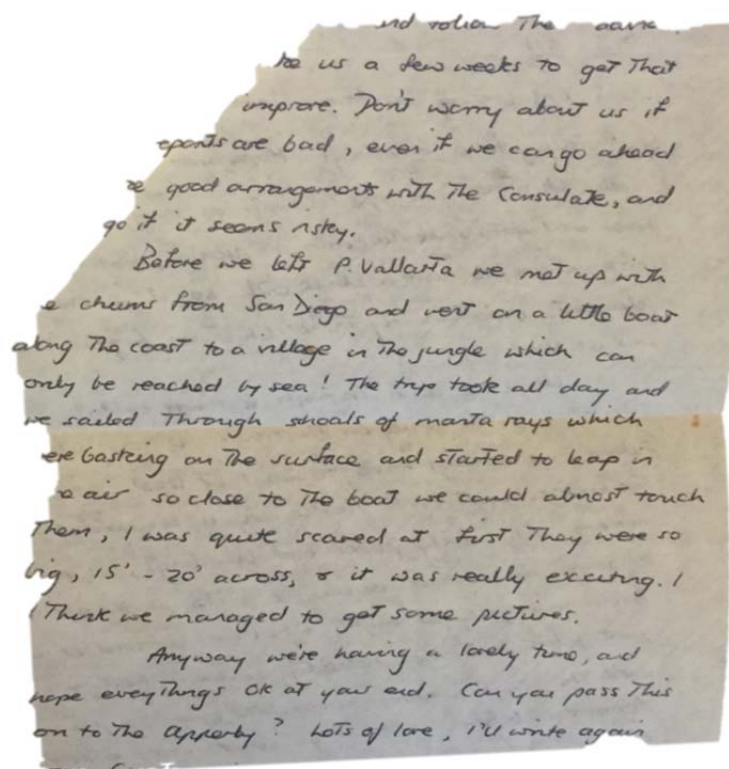 The
us a few weeks to get that
improve. Don't worry about us if
eports are bad, even if we can go ahead
e good arrangements with the Consulate, and
go if it seems risky.
Before we left P. Vallarta we met up with
e chums from San Diego and went on a little boat
along the coast to a village in the jungle which can
only be reached by sea! The trip took all day and
we sailed through shoals of manta rays which
ere basking on the surface and started to leap in
e air so close to the boat we could almost touch
them, I was quite scared at first they were so
big, 15' - 20' across, & it was really exciting. I
I think we managed to get some pictures.
Anyway we're having a lovely time, and
hope everythings OK at your end. Can you pass this
on to the ? Lots of love, I'll write again